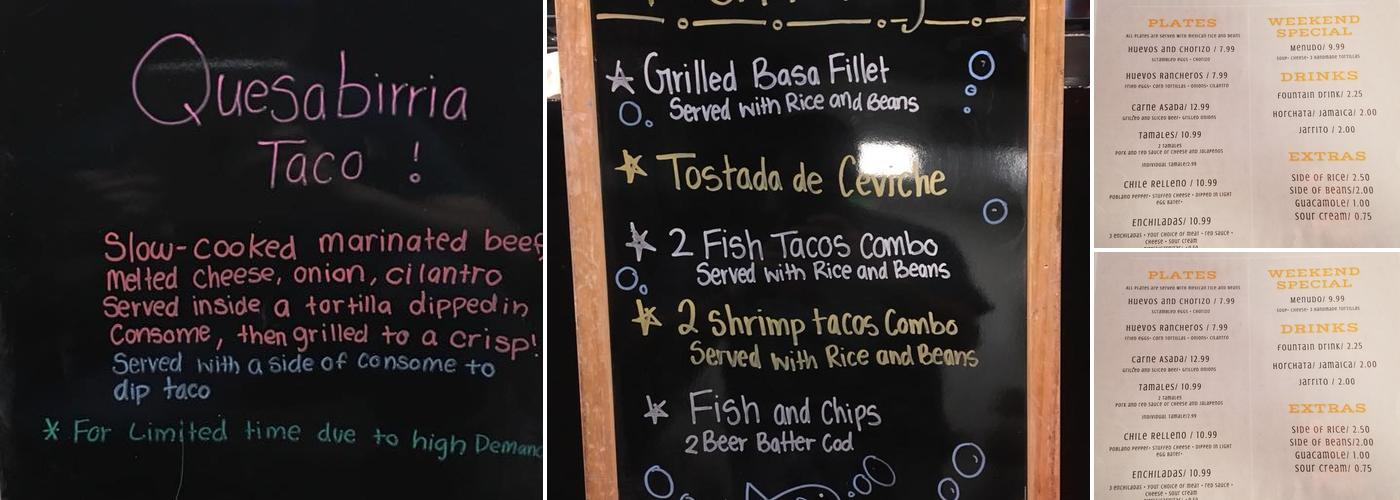 Quesabirria
Taco !
Slow-cooked marinated beef
melted cheese, onion, cilantro
Served inside a tortilla dipped in
Consome, then grilled to a crisp!
Served with a side of consome to
dip taco
* For Limited time due to high Demand
Grilled Basa Fillet
Served with Rice and Beans
Tostada de Ceviche
2 Fish Tacos Combo
Served with Rice and Beans
2 Shrimp tacos Combo
Served with Rice and Beans
Fish and Chips
2 Beer Batter Cod
PLATES
ALL PLATES ARE SERVED WITH MEXICAN RICE AND BEANS
HUEVOS AND CHORIZO / 7.99
SCRAMBLED EGGS • CHORIZO
HUEVOS RANCHEROS / 7.99
FRIED EGGS• CORN TORTILLAS • ONIONS• CILANTRO
CARNE ASADA/ 12.99
GRILLED AND SLICED BEEF• GRILLED ONIONS
TAMALES/ 10.99
2 TAMALES
PORK AND RED SAUCE OR CHEESE AND JALAPENOS
INDIVIDUAL TAMALE/2.99
CHILE RELLENO / 10.99
POBLANO PEPPER• STUFFED CHEESE • DIPPED IN LIGHT
EGG BATER•
ENCHILADAS/ 10.99
3 ENCHILADAS • YOUR CHOICE OF MEAT • RED SAUCE •
CHEESE • SOUR CREAM
WEEKEND
SPECIAL
MENUDO/ 9.99
SOUP• CHEESE• 3 HANDMADE TORTILLAS
DRINKS
FOUNTAIN DRINK/ 2.25
HORCHATA/ JAMAICA/ 2.00
JARRITO / 2.00
EXTRAS
SIDE OF RICE/ 2.50
SIDE OF BEANS/2.00
GUACAMOLE/ 1.00
SOUR CREAM/ 0.75
PLATES
ALL PLATES ARE SERVED WITH MEXICAN RICE AND BEANS
HUEVOS AND CHORIZO / 7.99
SCRAMBLED EGGS • CHORIZO
HUEVOS RANCHEROS / 7.99
FRIED EGGS• CORN TORTILLAS • ONIONS• CILANTRO
CARNE ASADA/ 12.99
GRILLED AND SLICED BEEF• GRILLED ONIONS
TAMALES/ 10.99
2 TAMALES
PORK AND RED SAUCE OR CHEESE AND JALAPENOS
INDIVIDUAL TAMALE/2.99
CHILE RELLENO / 10.99
POBLANO PEPPER• STUFFED CHEESE • DIPPED IN LIGHT
EGG BATER•
ENCHILADAS/ 10.99
3 ENCHILADAS • YOUR CHOICE OF MEAT • RED SAUCE •
CHEESE • SOUR CREAM
WEEKEND
SPECIAL
MENUDO/ 9.99
SOUP• CHEESE• 3 HANDMADE TORTILLAS
DRINKS
FOUNTAIN DRINK/ 2.25
HORCHATA/ JAMAICA/ 2.00
JARRITO / 2.00
EXTRAS
SIDE OF RICE/ 2.50
SIDE OF BEANS/2.00
GUACAMOLE/ 1.00
SOUR CREAM/ 0.75